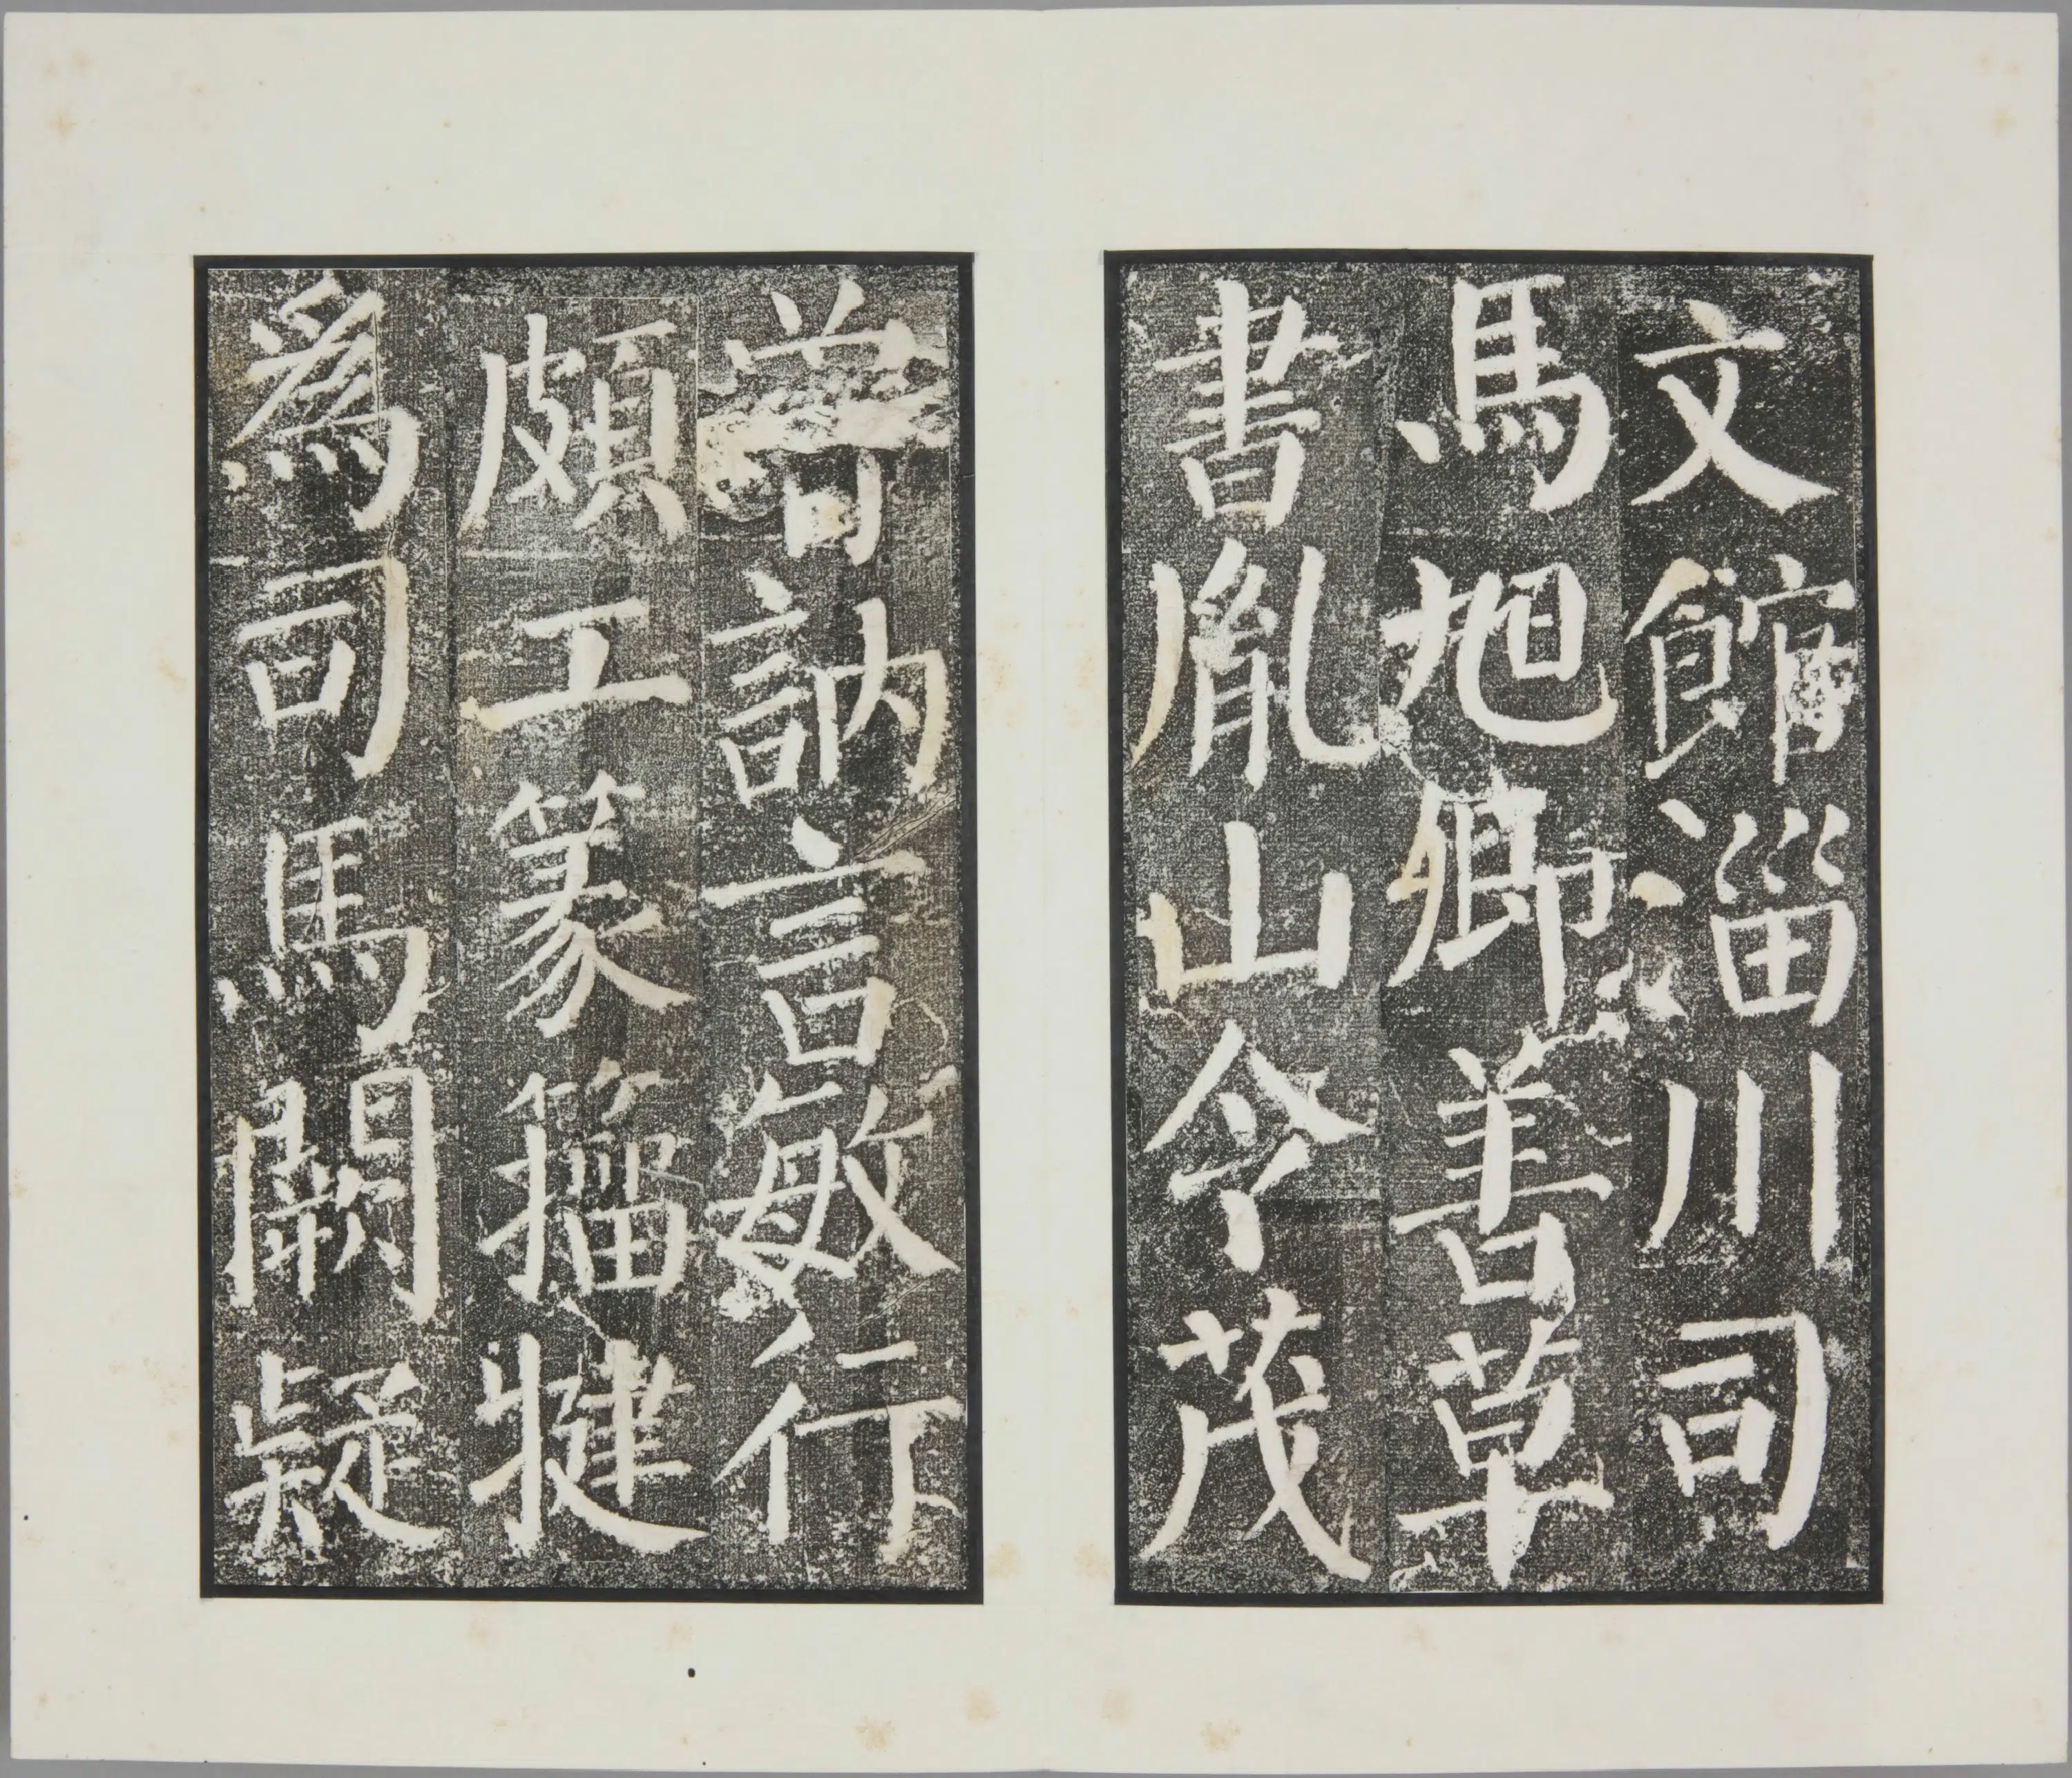 文館淄川司
馬旭卿善草
書胤山令茂
曾訥言敏行
頗工篆籀犍
為司馬闕疑